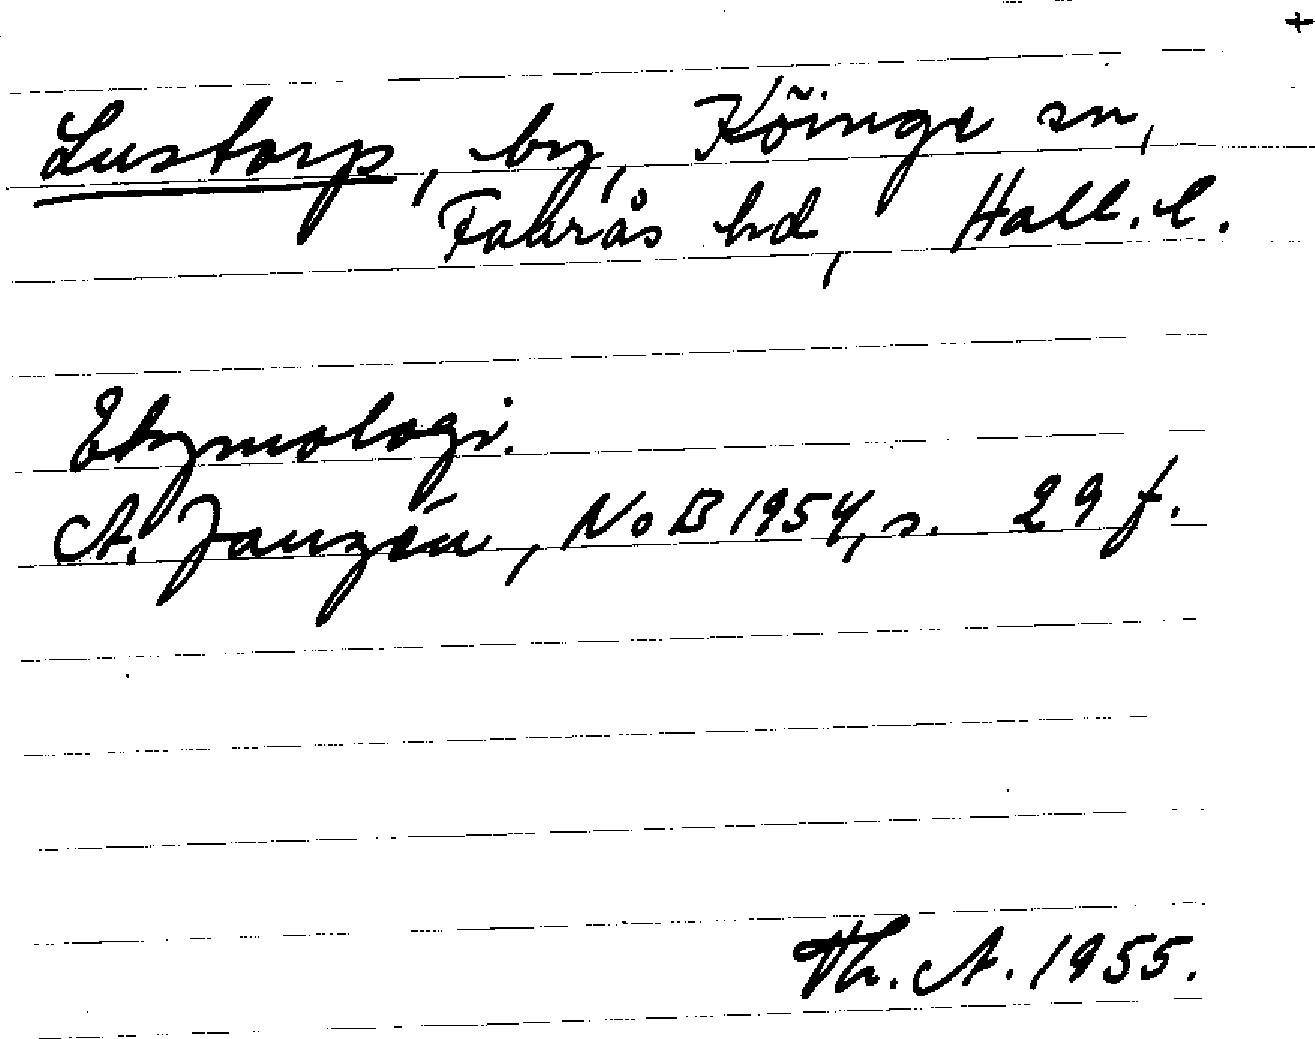 +
Lustorp, by, Köinge sn,
Faurås hd, Hall. l.
Etymologi.
A. Janzén, NoB 1954, s. 29 f.
Th. A. 1955.